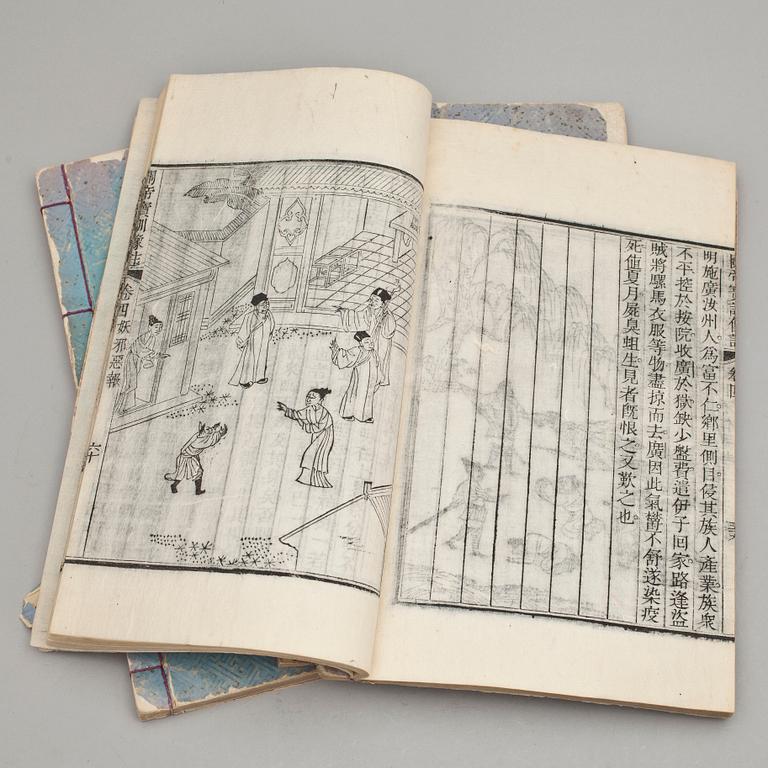 明施廣汝州人為富不仁鄉里側目侵其族人產業族衆
不平控於按院收廣於獄缺少盤費遣伊子回家路逢盜
賊將騾馬衣服等物盡掠而去廣因此氣鬱不舒遂染疫
死値夏月屍臭蛆生見者旣恨之又歎之也
關帝寶訓像註 卷四妖邪惡報